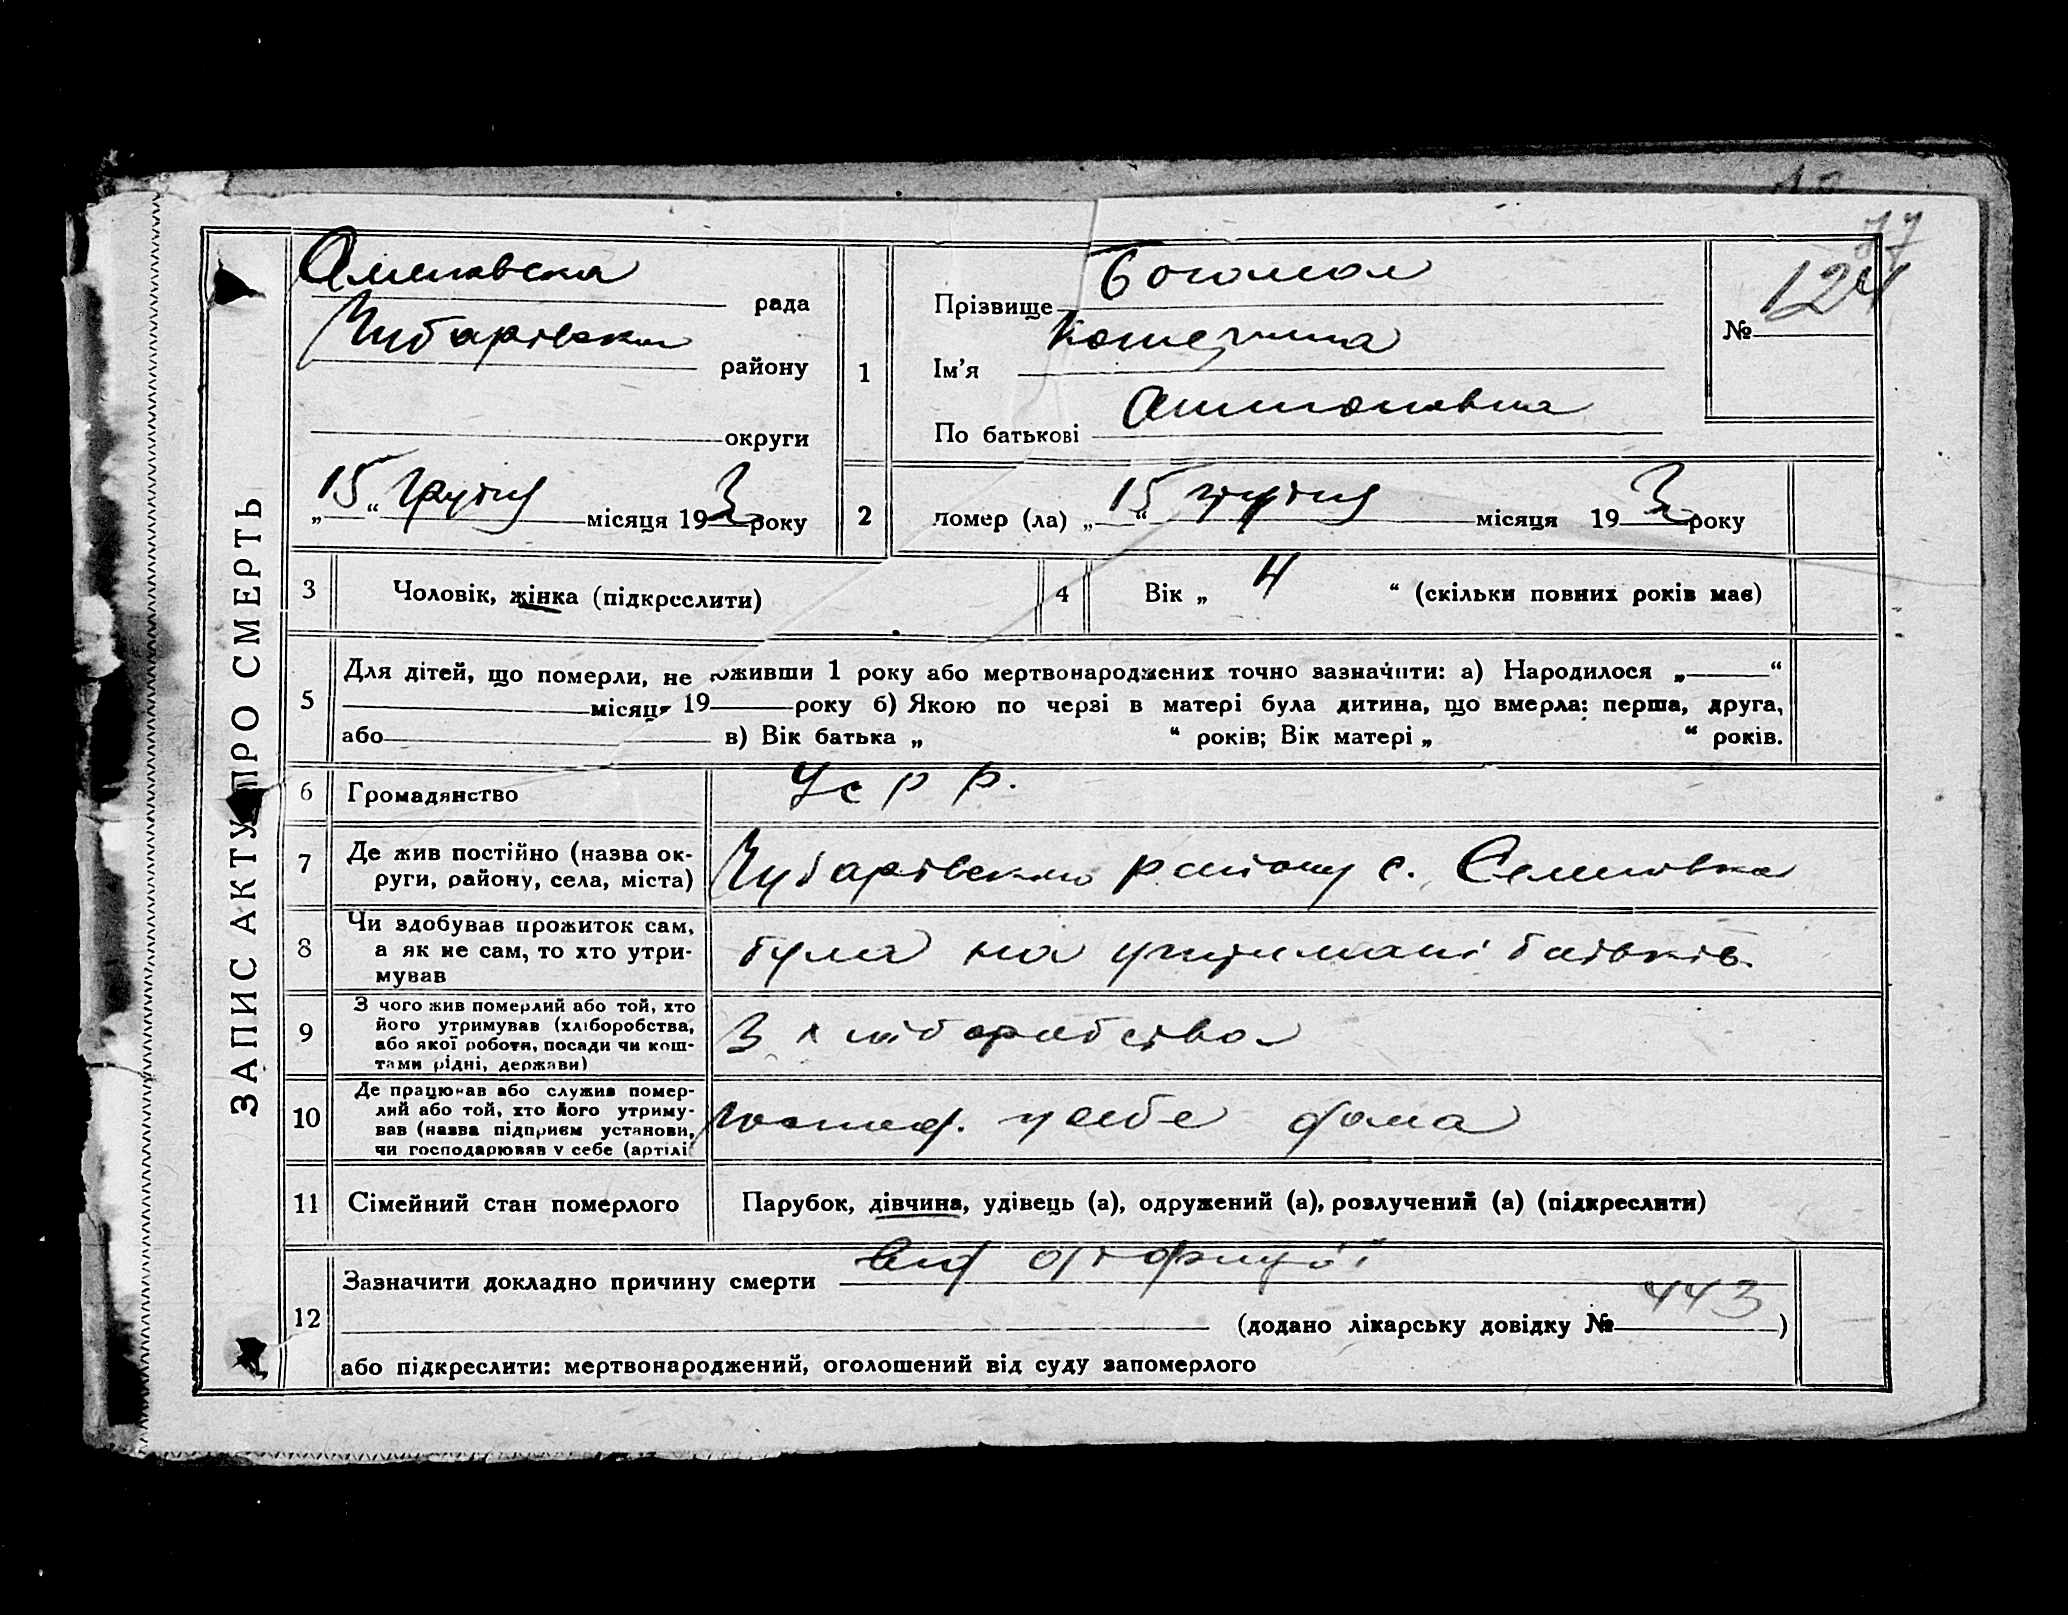 77
124
ЗАПИС АКТУ ПРО СМЕРТЬ
рада
Чубарівського
району
округи
„15“ грудня місяця 193 3 року
1
Прізвище Богомол
Ім'я Катерина
По батькові Антоновна
№
2
помер (ла) „15“ грудня місяця 193 3 року
3
Чоловік, жінка (підкреслити)
4
Вік „ 4 “ (скільки повних років має)
5
Для дітей, що померли, не доживши 1 року або мертвонароджених точно зазначити: а) Народилося „ “
місяця 19 року б) Якою по черзі в матері була дитина, що вмерла: перша, друга,
або в) Вік батька „ “ років; Вік матері „ “ років.
6
Громадянство
УСРР.
7
Де жив постійно (назва ок-
руги, району, села, міста)
Чубарівського району с.
8
Чи здобував прожиток сам,
а як не сам, то хто утри-
мував
була на утримані батьків.
9
З чого жив померлий або той, хто
його утримував (хліборобства,
або якої роботи, посади чи кош-
тами рідні, держави)
З хліборобства
10
Де працював або служив помер-
лий або той, хто його утриму-
вав (назва підприєм установи,
чи господарював у себе (артілі
господ. у себе дома
11
Сімейний стан померлого
Парубок, дівчина, удівець (а), одружений (а), розлучений (а) (підкреслити)
12
Зазначити докладно причину смерти від
(додано лікарську довідку № 443)
або підкреслити: мертвонароджений, оголошений від суду запомерлого